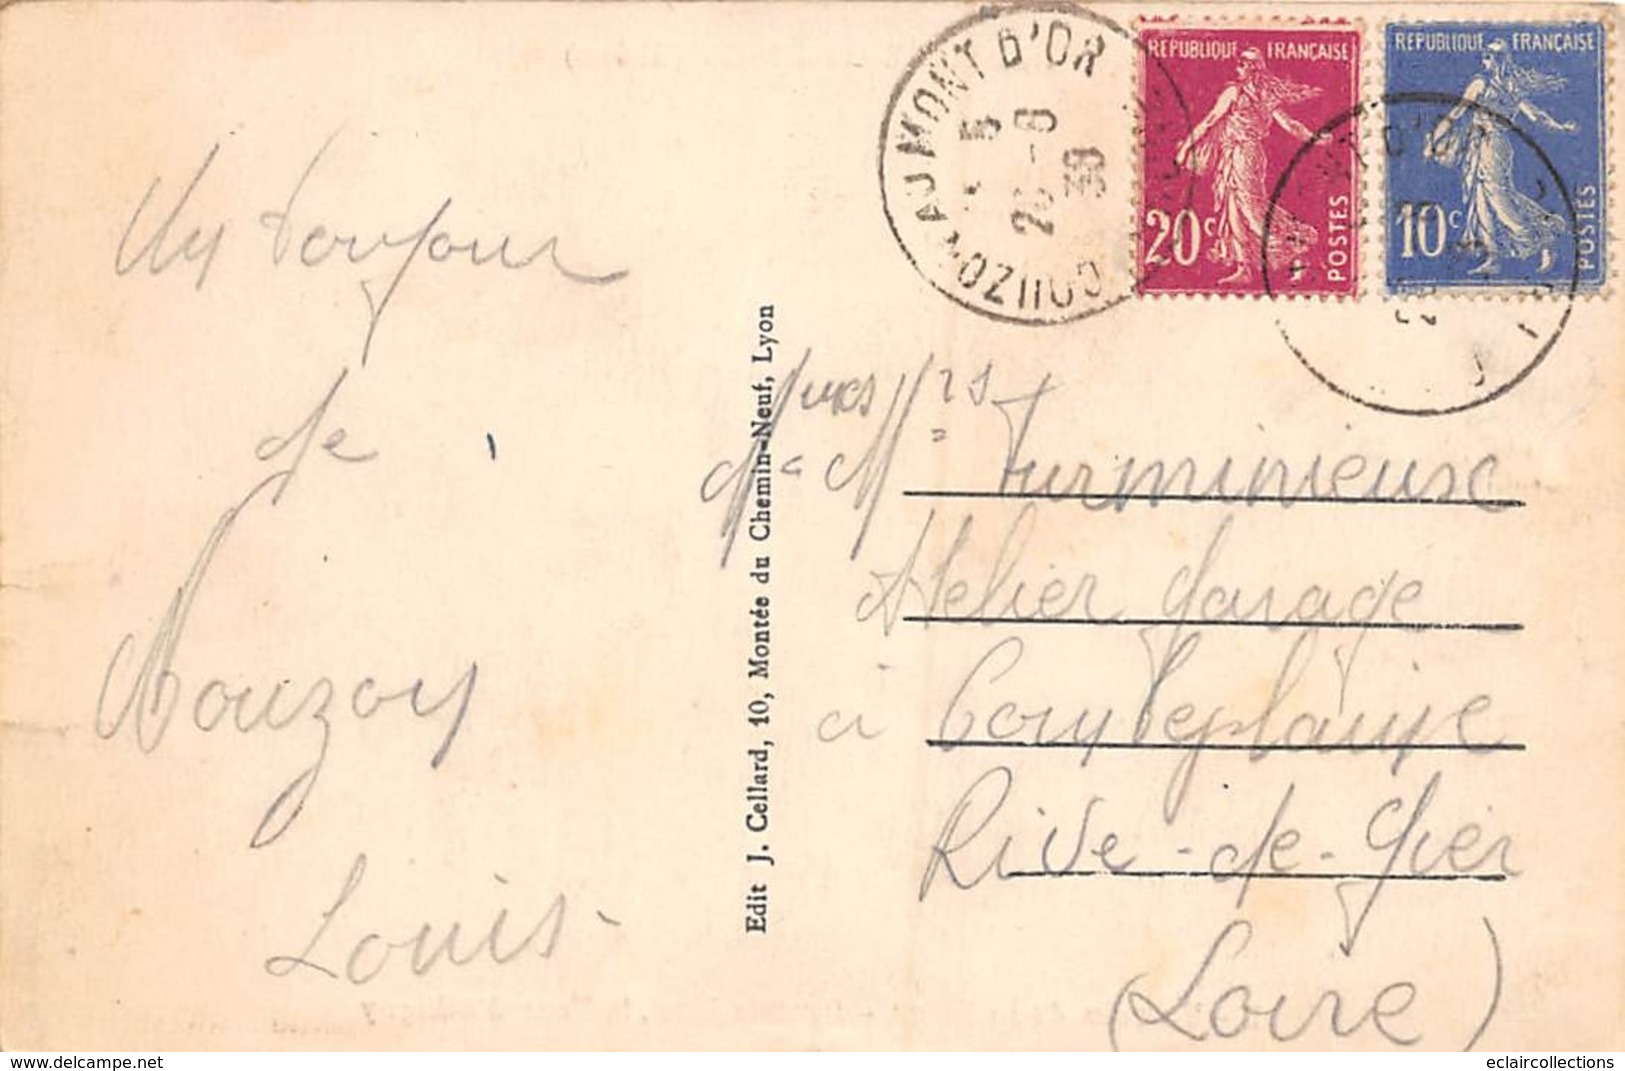 Un Bonjour
de
Kouzou
Louis
Edit J. Cellard, 10, Montée du Chemin-Neuf, Lyon
COUZON AU MONT D'OR
5
26-6
39
REPUBLIQUE FRANÇAISE
20c
POSTES
REPUBLIQUE FRANÇAISE
10c
POSTES
MONT D'OR
Furminieuse
Atelier Garage
à Couzeplaine
Rive-de-Gier
(Loire)
delcampe.net
eclaircollections